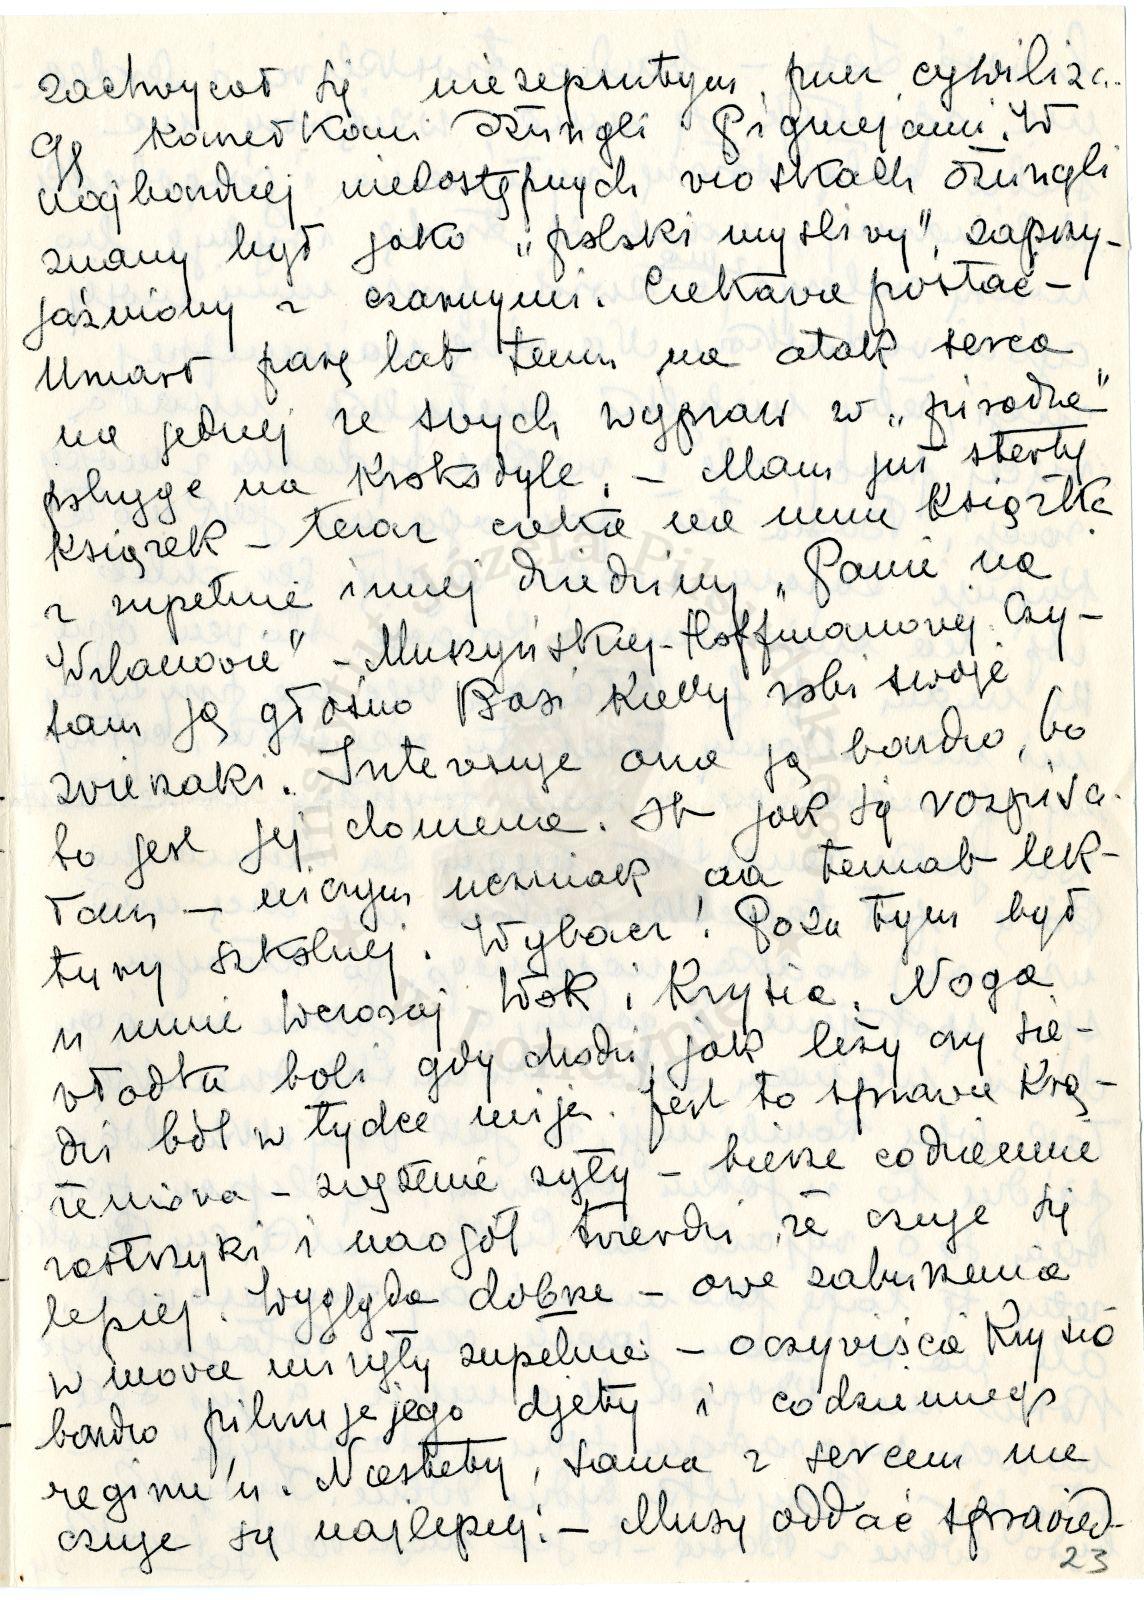 zachwycał się niezepsutym przez cywiliza-
cję karełkami dżungli Pigmejami. W
najbardziej niedostępnych wioskach dżungli
znany był jako „polski myśliwy", zaprzy-
jaźniony z czarnymi. Ciekawa postać –
Umarł parę lat temu na atak serca
na jednej ze swych wypraw w „pirodze"
polując na krokodyle. – Mam już sterty
książek – teraz czeka na mnie książka
z zupełnie innej dziedziny „Panie na
Wilanowie" – Muszyńskiej-Hoffmanowej. Czy-
tam ją głośno Basi kiedy robi swoje
zwierzaki. Interesuje ona ją bardzo, bo
to jest jej domena. Ot jak się rozpisa-
łam – niczym uczniak na temat lek-
tury szkolnej. Wybacz! Poza tym był
u mnie wczoraj Wok i Krysia. Noga
Włodka boli gdy chodzi, jak leży czy sie-
dzi ból w łydce mija. Jest to sprawa krą-
żeniowa – zwężenie żyły – bierze codziennie
zastrzyki i naogół twierdzi, że czuje się
lepiej. Wygląda dobrze – owe zaburzenia
w mowie minęły zupełnie – oczywiście Krysia
bardzo pilnuje jego djety i codziennego
regime'u. Niestety, sama z sercem nie
czuje się najlepiej! – Muszę oddać sprawied-
23
Instytut Józefa Piłsudskiego
w Londynie